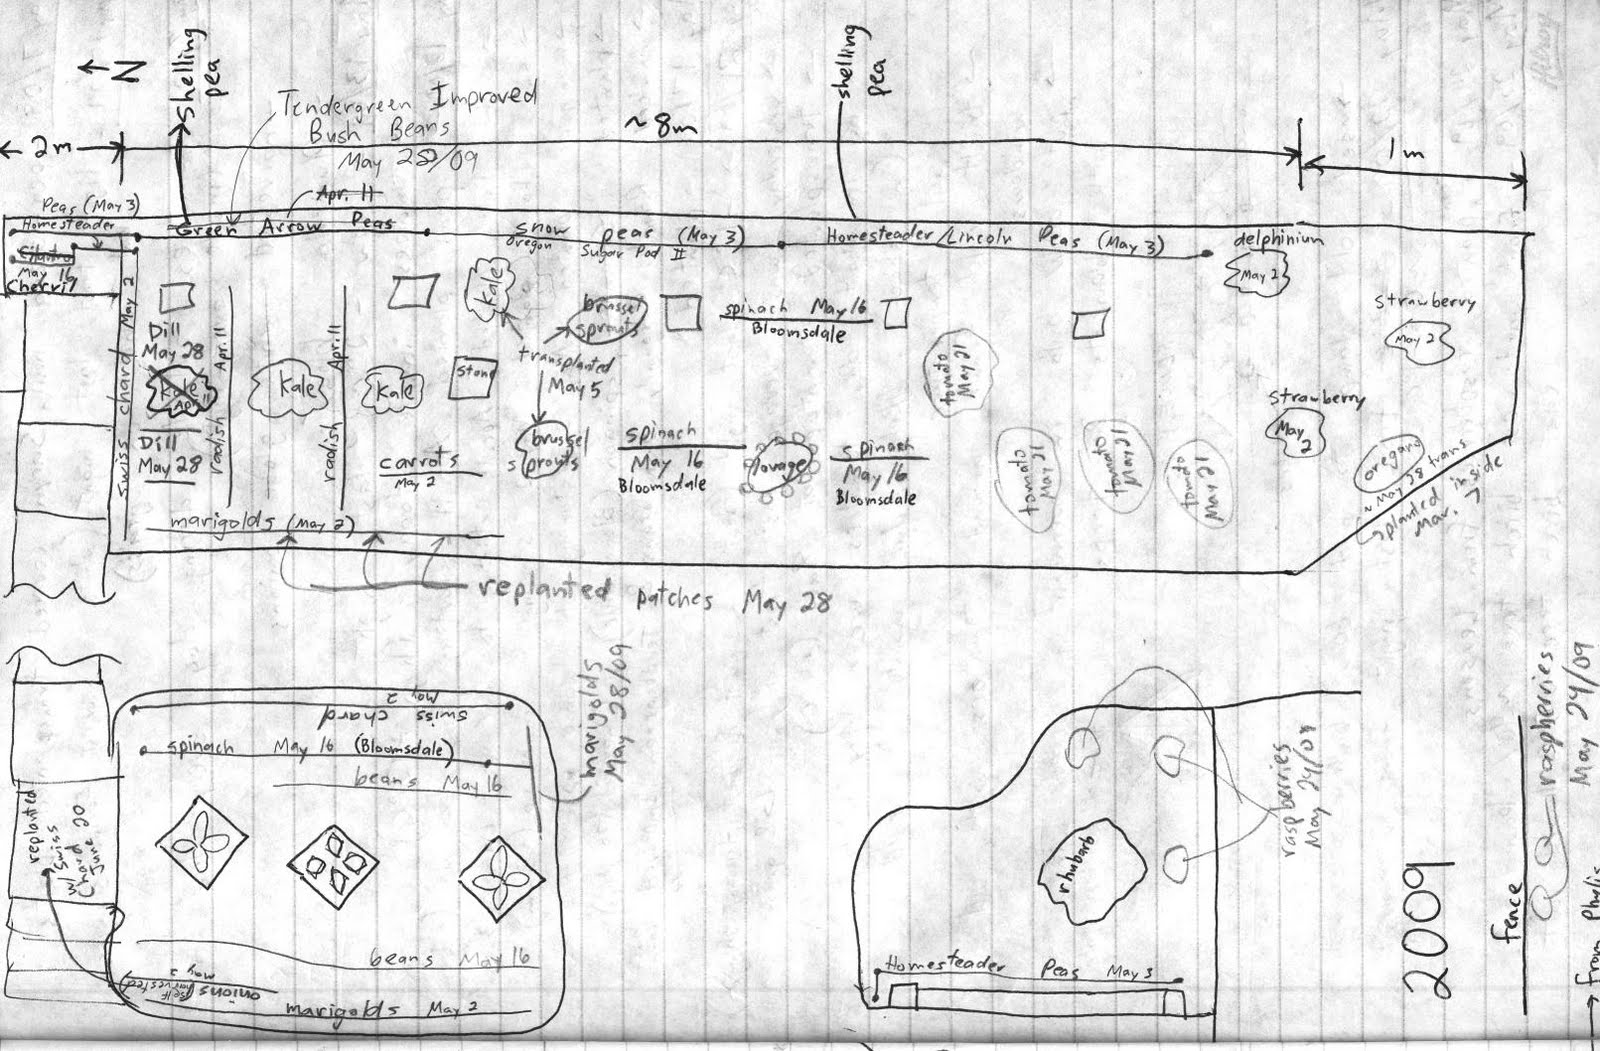 N
shelling
pea
Tendergreen Improved
Bush Beans
May 28/09
2m
~8m
shelling
pea
1m
Peas (May 3)
Homesteader
Cilantro
May 16
Chervil
Apr. 11
Green Arrow Peas
snow peas (May 3)
Oregon Sugar Pod II
Homesteader/Lincoln Peas (May 3)
delphinium
May 2
strawberry
May 2
strawberry
May 2
swiss chard May 2
Dill
May 28
kale
Apr. 11
Dill
May 28
radish Apr. 11
kale
radish Apr. 11
kale
stone
kale
brussel
sprouts
transplanted
May 5
brussel
sprouts
carrots
May 2
spinach May 16
Bloomsdale
spinach
May 16
Bloomsdale
lovage
spinach
May 16
Bloomsdale
tomato
May 21
tomato
May 21
tomato
May 21
tomato
May 21
oregano
~ May 28 trans
planted inside
Mar. 7
marigolds (May 2)
replanted patches May 28
swiss chard
May 2
spinach May 16 (Bloomsdale)
beans May 16
marigolds
May 28/09
replanted
w/ Swiss
Chard
June 20
beans May 16
onions
May 2
self
harvested
marigolds May 2
raspberries
May 24/08
rhubarb
Homesteader Peas May 3
2009
fence
raspberries
May 24/09
From Phylis